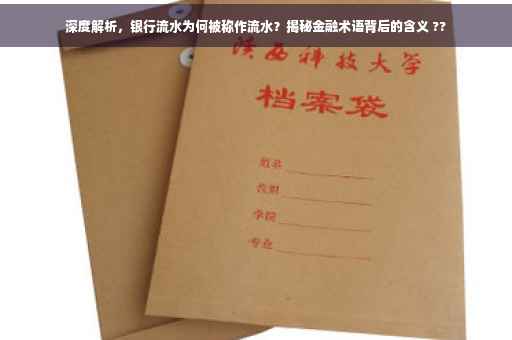 深度解析，银行流水为何被称作流水？揭秘金融术语背后的含义 ??
陕西科技大学
档案袋
姓名
学院
专业